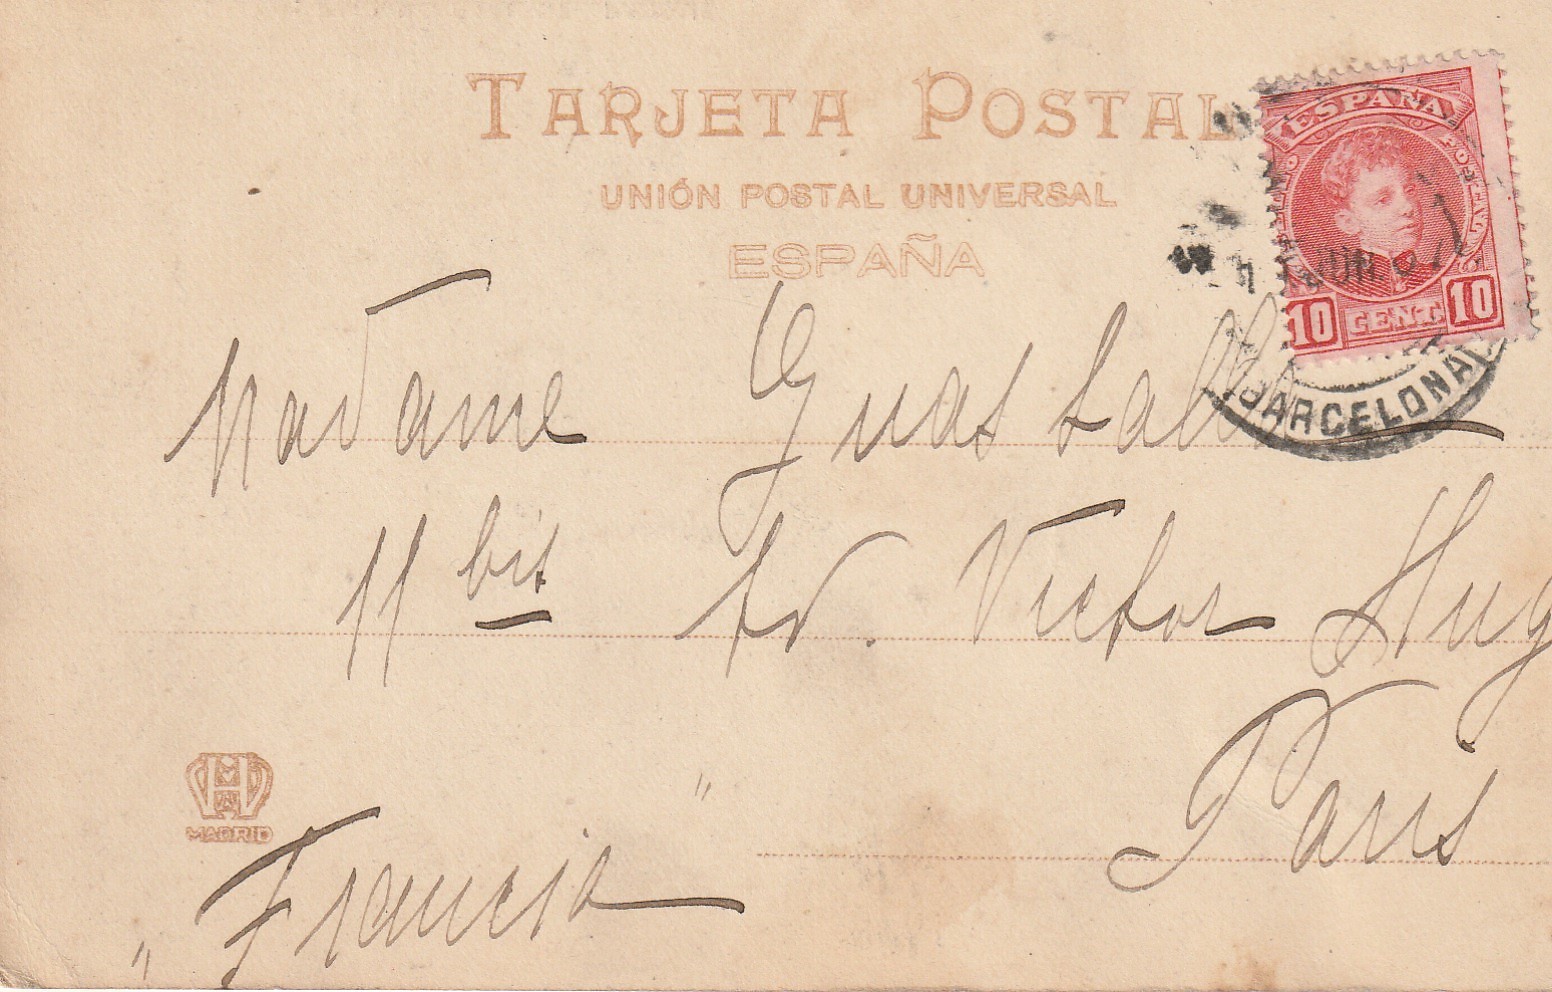 TARJETA POSTAL
UNIÓN POSTAL UNIVERSAL
ESPAÑA
ESPAÑA
10 CENT. 10
JUN
BARCELONA
Madame Guastalla
11 bis Av. Victor Hug
Paris
MADRID
" Francia "